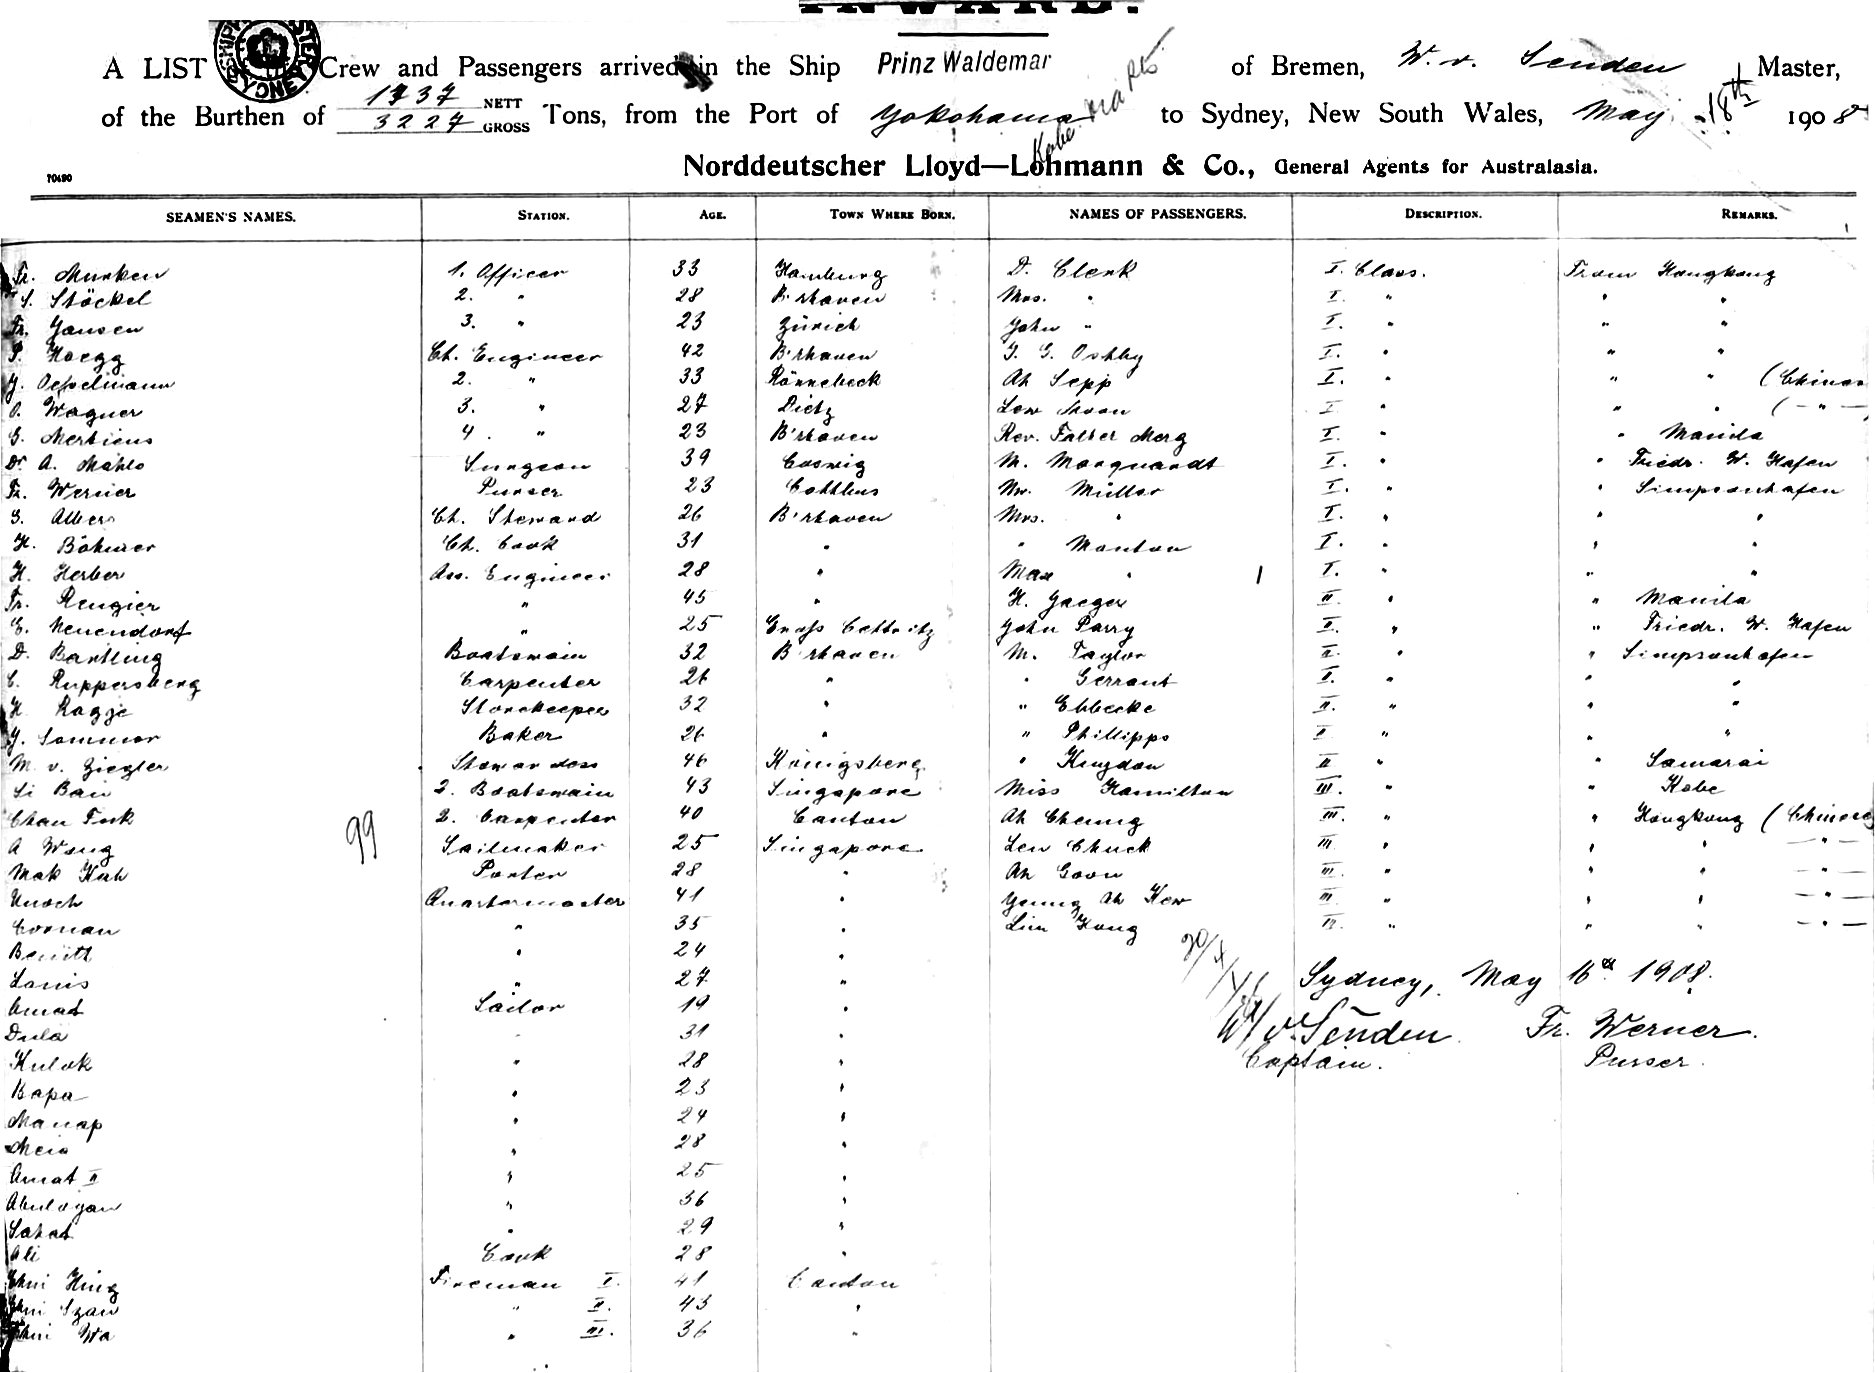 INWARD.
A LIST of the Crew and Passengers arrived in the Ship Prinz Waldemar of Bremen, W. v. Senden Master,
of the Burthen of 1737 NETT 3227 GROSS Tons, from the Port of Yokohama Kobe to Sydney, New South Wales, May 18th 1908
Norddeutscher Lloyd—Lohmann & Co., General Agents for Australasia.
70490
SEAMEN'S NAMES. STATION. AGE. TOWN WHERE BORN. NAMES OF PASSENGERS. DESCRIPTION. REMARKS.
Fr. Murken 1. Officer 33 Hamburg D. Clerk I. Class. From Hongkong
S. Stöckel 2. " 28 B'rhaven Mrs. " I. " " "
Fr. Jansen 3. " 23 Zürich John " I. " " "
P. Hoegg Ch. Engineer 42 B'rhaven I. " " "
2. " 33 Rönnebeck Ah Sepp I. " " " (Chinese
O. Wagner 3. " 27 Dietz Lew Moon I. " " " ( — " —
G. Mertiens 4. " 23 B'rhaven Rev. Father Merg I. " " Manila
Dr A. Mahlo Surgeon 39 Coswig M. Marquardt I. " " Friedr. W. Hafen
Fr. Werner Purser 23 Cottbus Mr. Müller I. " " Simpsonhafen
G. Albers Ch. Steward 26 B'rhaven Mrs. " I. " " "
H. Böhmer Ch. Cook 31 " " Manton I. " " "
H. Herber Ass. Engineer 28 " Max " I. " " "
Fr. Rengier " 45 " H. Jaeger II. " " Manila
E. Neuendorf " 25 John Parry II. " " Friedr. W. Hafen
D. Bartling Boatswain 32 B'rhaven M. Taylor II. " " Simpsonhafen
C. Ruppersberg Carpenter 26 " " Gerrant II. " " "
H. Ragge Storekeeper 32 " " Ebbecke II. " " "
J. Sommer Baker 26 " " Phillipps II. " " "
M. v. Ziegler Stewardess 46 Königsberg " Kingdon II " " Samarai
Si Bau 2. Boatswain 43 Singapore Miss Hamilton III. " " Kobe
Chan Fuk 2. Carpenter 40 Canton Ah Cheung III. " " Hongkong (Chinese)
99
A Wong Sailmaker 25 Singapore Lew Chuck III " " " — " —
Mak Kah Porter 28 " Ah Goon III. " " " — " —
Unoch Quartermaster 41 " Young Ah Kew III " " " — " —
Cornau " 35 " Lim Kong III. " " " — " —
Benitt " 24 "
Lanis " 27 "
Sydney, May 16th 1908.
Amat Sailor 19 "
Dula " 31 "
W. v. Senden Fr. Werner
Captain. Purser.
Kulok " 28 "
Bapa " 23 "
Manap " 24 "
Meia " 28 "
Amat II " 25 "
Abulayan " 36 "
Sahat " 29 "
Ali Cook 28 "
Chui Hing Fireman I. 41 Canton
Chui Szan " II. 43 "
Chui Wa " III. 36 "